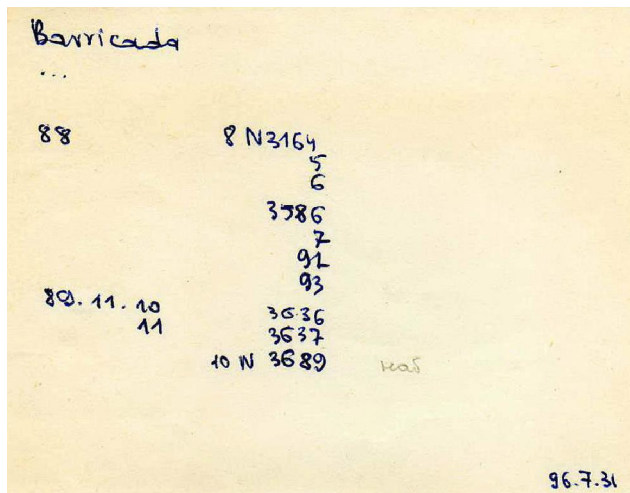 Barricada
...
88 8 N3164
5
6
3586
7
91
93
89.11.10 3636
11 3637
10 N 3689 наб
96.7.31